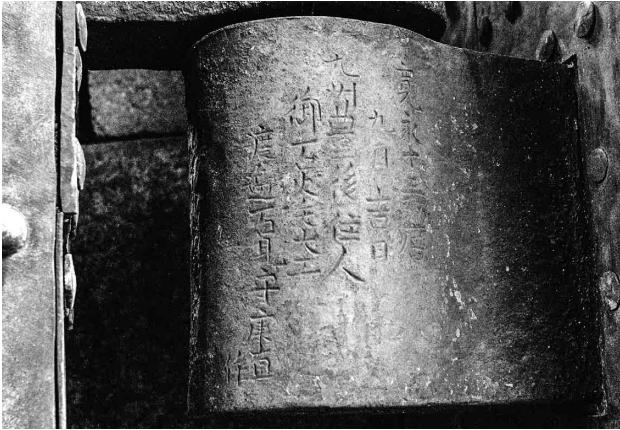 寛永十
九月吉日
九州豊後住人
御石火矢大工
渡邊石見守康直
作